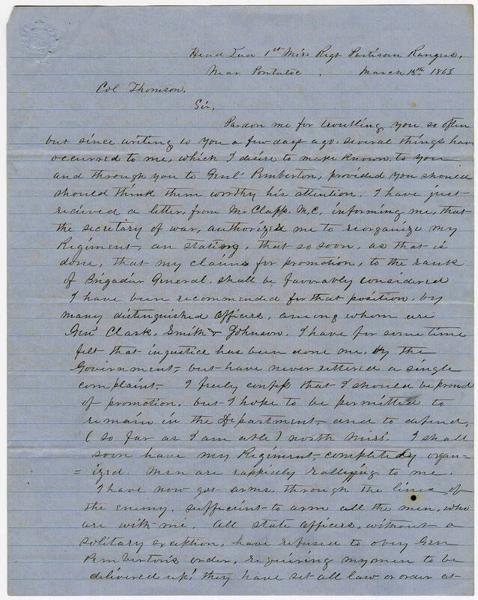 Head Qua 1st Miss Regt Partisan Rangers,
Near Pontotoc, March 15th 1863
Col Thomson,
Sir,
Pardon me for troubling you so often
but since writing to you a few days ago, several things have
occurred to me, which I desire to make known to you
and through you to Genl Pemberton, provided you should
should think them worthy his attention. I have just
recieved a letter, from Mr Clapp M.C, informing me, that
the secretary of war, authorized me to reorganize my
Regiment, an stating, that so soon, as that is
done, that my claims for promotion, to the rank
of Brigadier General, shall be favorably considered
I have been recommended for that position, by
many distinguished officers, among whom are
Genl Clark, Smith & Johnson. I have for some time
felt that injustice has been done me by the
Government, but have never uttered a single
complaint. I freely confess that I should be proud
of promotion, but I hope to be permitted to
remain in the Department and to defend,
(so far as I am able) north Miss. I shall
soon have my Regiment, completely organ-
=ized. men are rappidly rallying to me.
I have now got arms, through the lines of
the enemy, sufficient to arm all the men, who
are with me. All state officers, without a
solitary exception, have refused to obey Gen
Pemberton's order, requiring my men to be
delivered up; they have set all law or order at